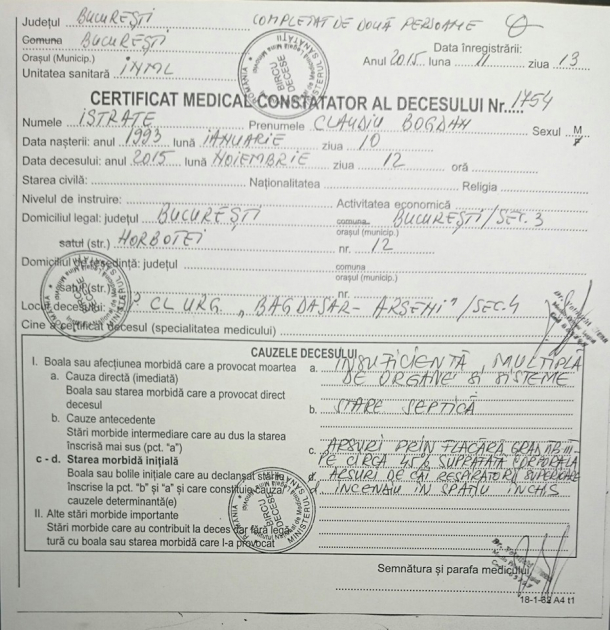 Județul BUCUREȘTI COMPLETAT DE DOUĂ PERSOANE
Comuna BUCUREȘTI Data înregistrării:
Orașul (Municip.) Anul 2015 luna 11 ziua 13
Unitatea sanitară INML
CERTIFICAT MEDICAL CONSTATATOR AL DECESULUI Nr. 1754
Numele ISTRATE Prenumele CLAUDIU BOGDAN Sexul M
F
Data nașterii: anul 1993 lună IANUARIE ziua 10
Data decesului: anul 2015 lună NOIEMBRIE ziua 12 oră
Starea civilă: Naționalitatea Religia
Nivelul de instruire: Activitatea economică
Domiciliul legal: județul BUCUREȘTI comuna BUCUREȘTI/SEC.3
orașul (municip.)
satul (str.) HORBOTEI nr. 12
Domiciliul de reședință: județul comuna
orașul (municip.)
satul (str.) nr.
Locul decesului: SP CL URG. „BAGDASAR-ARSENI"/SEC.4
Cine a certificat decesul (specialitatea medicului)
CAUZELE DECESULUI
I. Boala sau afecțiunea morbidă care a provocat moartea a. INSUFICIENȚĂ MULTIPLĂ
a. Cauza directă (imediată) DE ORGANE ȘI SISTEME
Boala sau starea morbidă care a provocat direct
decesul b. STARE SEPTICĂ
b. Cauze antecedente
Stări morbide intermediare care au dus la starea
înscrisă mai sus (pct. "a") c. ARSURI PRIN FLACĂRĂ GRAD IIB-III
c - d. Starea morbidă inițială PE CIRCA 45% SUPRAFAȚA CORPORALĂ
Boala sau bolile inițiale care au declanșat stările ARSURI DE CĂI RESPIRATORII SUPERIOARE
înscrise la pct. "b" și "a" și care constituie cauza d. INCENDIU ÎN SPAȚIU ÎNCHIS
cauzele determinantă(e)
II. Alte stări morbide importante
Stări morbide care au contribuit la deces dar fără legă-
tură cu boala sau starea morbidă care l-a provocat
Semnătura și parafa medicului
18-1-82 A4 t1